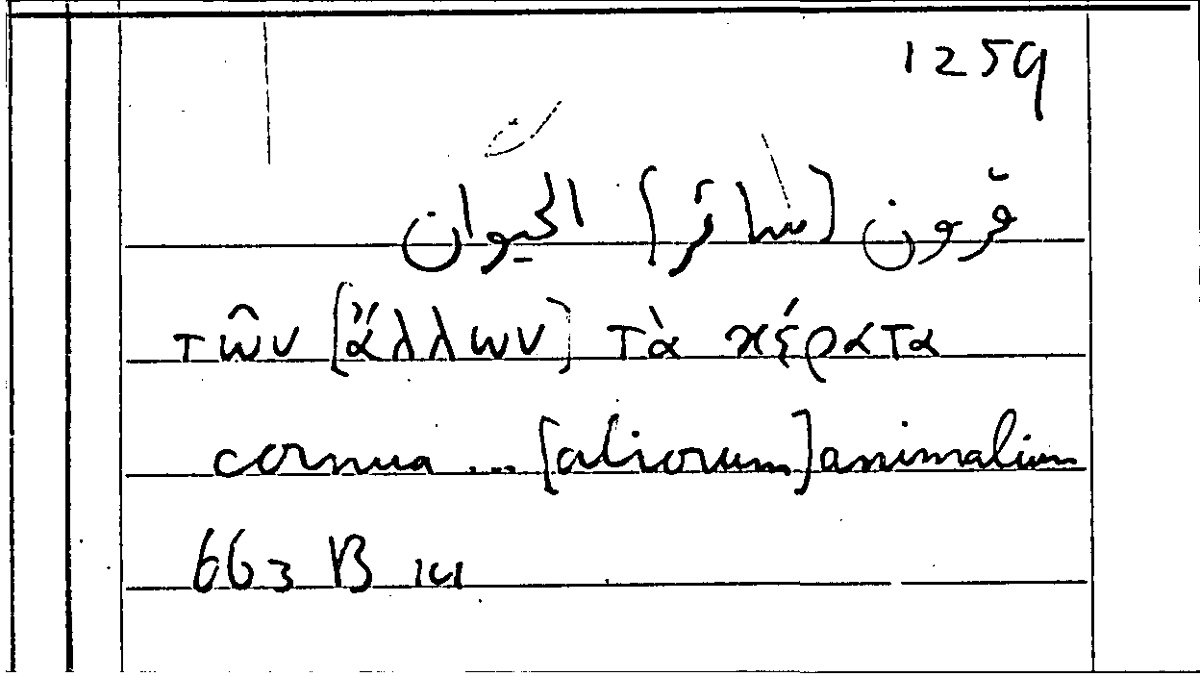 1259
قرون (سائر) الحيوان
τῶν [ἄλλων] τὰ κέρατα
cornua ... [aliorum] animalium
663 B 14